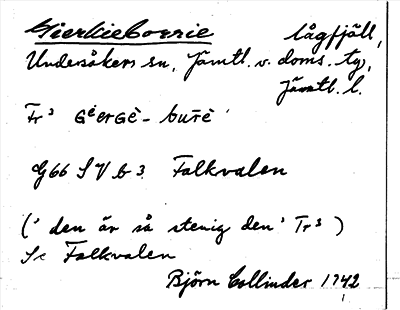 Gierkieboerie lågfjäll,
Undersåkers sn, Jämtl. v. doms. tg,
Jämtl. l.
Fr³ Gẹ̀ErGÈ-burè
G66 S V b 3 Falkvalen
(' den är så stenig den ' Tr³)
Se Falkvalen
Björn Collinder 1942